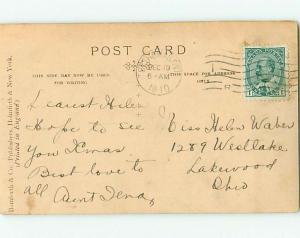 POST CARD
THIS SIDE MAY NOW BE USED
FOR WRITING
THIS SPACE FOR ADDRESS
ONLY.
DEC 19
6-AM
1910
R
Bamforth & Co., Publishers, Holmfirth & New York.
(Printed in England)
Dearest Helen
Hope to see
you Xmas
Best love to
all Aunt Tena,
Miss Helen Waber
1289 Westlake
Lakewood
Ohio